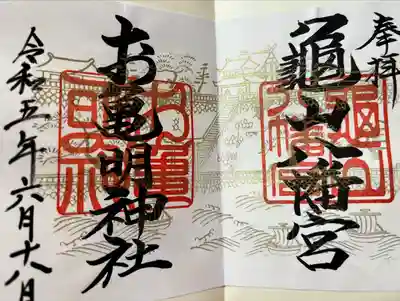 奉拝
龜山八幡宮
お亀明神社
令和五年六月十八日